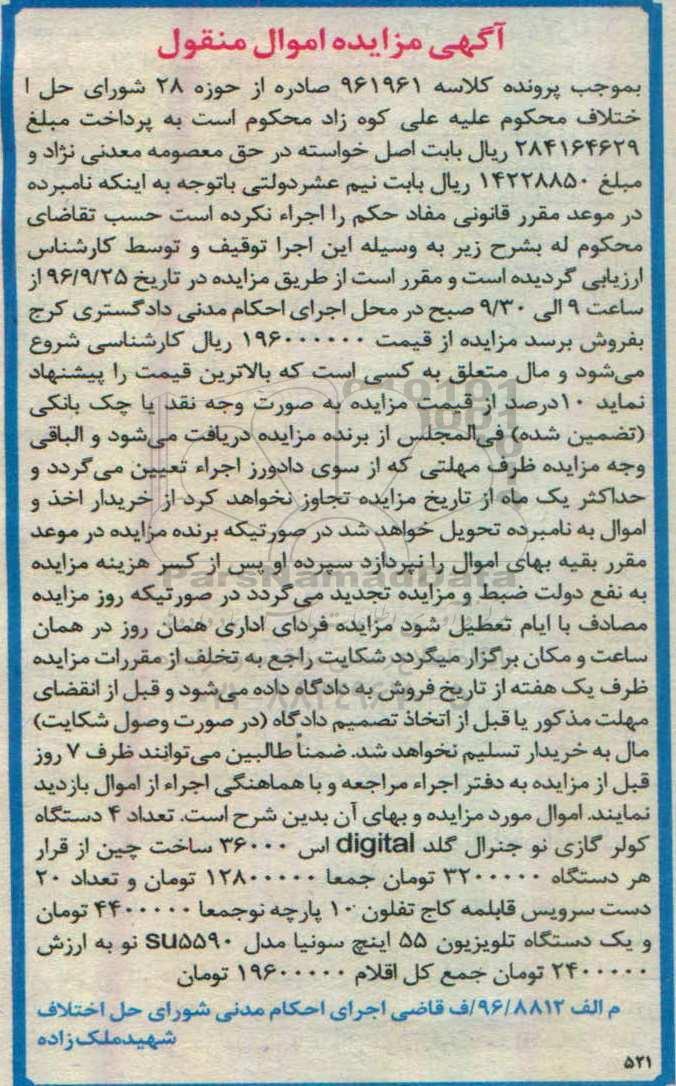 آگهی مزایده اموال منقول
بموجب پرونده کلاسه ۹۶۱۹۶۱ صادره از حوزه ۲۸ شورای حل ا
ختلاف محکوم علیه علی کوه زاد محکوم است به پرداخت مبلغ
۲۸۴۱۶۴۶۲۹ ریال بابت اصل خواسته در حق معصومه معدنی نژاد و
مبلغ ۱۴۲۲۸۸۵۰ ریال بابت نیم عشردولتی باتوجه به اینکه نامبرده
در موعد مقرر قانونی مفاد حکم را اجراء نکرده است حسب تقاضای
محکوم له بشرح زیر به وسیله این اجرا توقیف و توسط کارشناس
ارزیابی گردیده است و مقرر است از طریق مزایده در تاریخ ۹۶/۹/۲۵ از
ساعت ۹ الی ۹/۳۰ صبح در محل اجرای احکام مدنی دادگستری کرج
بفروش برسد مزایده از قیمت ۱۹۶۰۰۰۰۰۰ ریال کارشناسی شروع
می‌شود و مال متعلق به کسی است که بالاترین قیمت را پیشنهاد
نماید ۱۰درصد از قیمت مزایده به صورت وجه نقد یا چک بانکی
(تضمین شده) فی‌المجلس از برنده مزایده دریافت می‌شود و الباقی
وجه مزایده ظرف مهلتی که از سوی دادورز اجراء تعیین می‌گردد و
حداکثر یک ماه از تاریخ مزایده تجاوز نخواهد کرد از خریدار اخذ و
اموال به نامبرده تحویل خواهد شد در صورتیکه برنده مزایده در موعد
مقرر بقیه بهای اموال را نپردازد سپرده او پس از کسر هزینه مزایده
ParsNamadData
به نفع دولت ضبط و مزایده تجدید می‌گردد در صورتیکه روز مزایده
مصادف با ایام تعطیل شود مزایده فردای اداری همان روز در همان
ساعت و مکان برگزار میگردد شکایت راجع به تخلف از مقررات مزایده
ظرف یک هفته از تاریخ فروش به دادگاه داده می‌شود و قبل از انقضای
مهلت مذکور یا قبل از اتخاذ تصمیم دادگاه (در صورت وصول شکایت)
مال به خریدار تسلیم نخواهد شد. ضمناً طالبین می‌توانند ظرف ۷ روز
قبل از مزایده به دفتر اجراء مراجعه و با هماهنگی اجراء از اموال بازدید
نمایند. اموال مورد مزایده و بهای آن بدین شرح است. تعداد ۴ دستگاه
کولر گازی نو جنرال گلد digital اس ۳۶۰۰۰ ساخت چین از قرار
هر دستگاه ۳۲۰۰۰۰۰ تومان جمعا ۱۲۸۰۰۰۰۰ تومان و تعداد ۲۰
دست سرویس قابلمه کاج تفلون ۱۰ پارچه نوجمعا ۴۴۰۰۰۰۰ تومان
و یک دستگاه تلویزیون ۵۵ اینچ سونیا مدل su۵۵۹۰ نو به ارزش
۲۴۰۰۰۰۰ تومان جمع کل اقلام ۱۹۶۰۰۰۰۰ تومان
م الف ۹۶/۸۸۱۲/ف قاضی اجرای احکام مدنی شورای حل اختلاف
شهیدملک‌زاده
۵۲۱